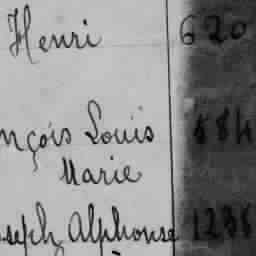 Henri 620
nçois Louis 884
Marie
oseph Alphonse